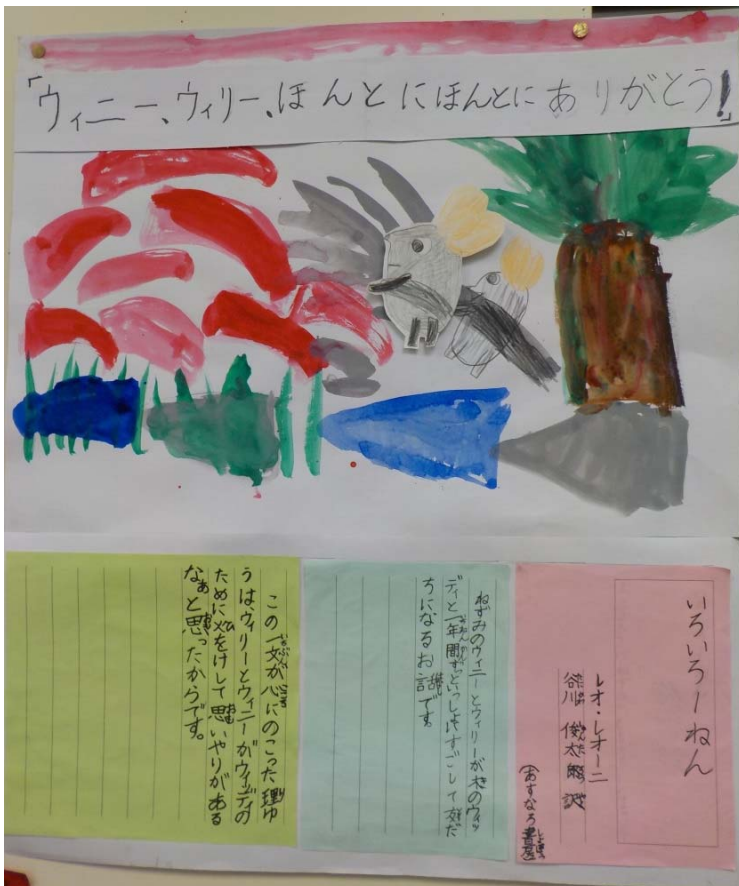 「ウィニー、ウィリー、ほんとにほんとにありがとう!」
いろいろ一ねん
レオ・レオーニ
谷川 俊太郎 訳
(あすなろ書房)
ねずみのウィニーとウィリーが木のウッ
ディと一年間ずっといっしょにすごして友だ
ちになるお話です。
この一文が心にのこった理ゆ
うは、ウィリーとウィニーがウッディの
ために火をけして思いやりがある
なぁと思ったからです。